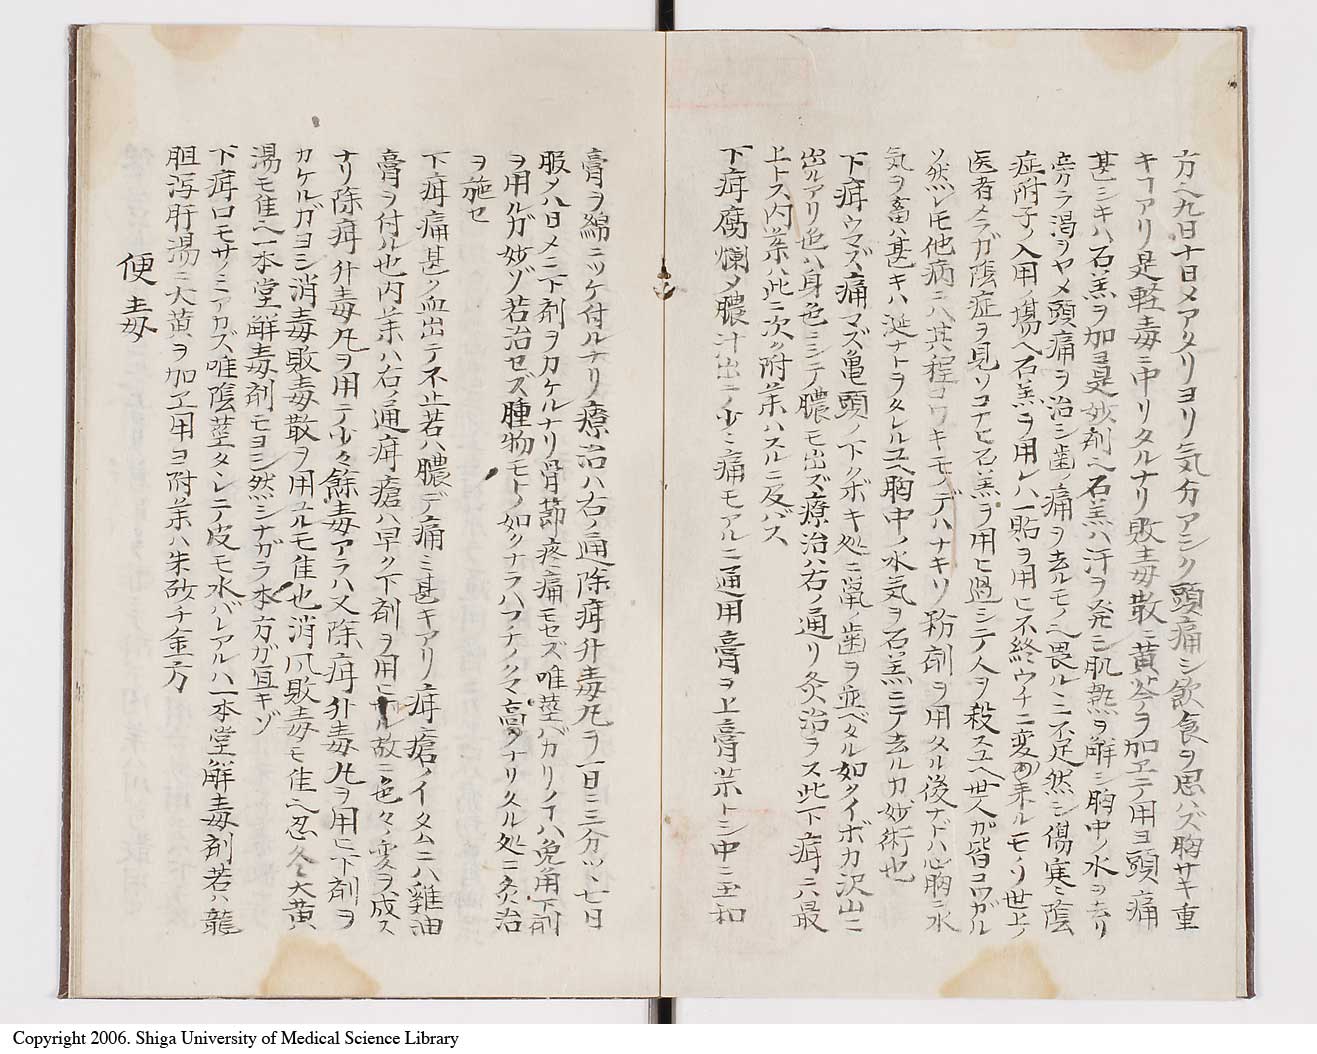 方ヘ九日十日メアタリヨリ気分アシク頭痛シ飲食ヲ思ハズ胸サキ重
キコアリ是軽毒ニ中リタルナリ敗毒散ニ黄芩ヲ加ヱテ用ヨ頭痛
甚シキハ石羔ヲ加ヨ是妙剤ヘ石羔ハ汗ヲ発シ肌熱ヲ解シ胸中ノ水ヲ去リ
渇ヲヤメ頭痛ヲ治シ歯ノ痛ヲ去ルモノヘ畏ルニ不足然シ傷寒ニ陰
症附子ノ入用ノ場ヘ石羔ヲ用レハ一貼ヲ用ヒ不終ウチニ変ノ来ルモノソ世上ノ
医者メラガ陰症ヲ見ソコナヒ石羔ヲ用ヒ過シテ人ヲ殺スユヘ世人ガ皆コワガル
ソ然レモ他病ニハ其程コワキモノデハナキソ粉剤ヲ用タル後ナドハ心胸ニ水
気ヲ畜ハ甚キハ涎ナトヲタレルユヘ胸中ノ水気ヲ石羔ニテ去ルカ妙術也
下疳ウマズ痛マズ亀頭ノ下クボキ処ニ鼠歯ヲ並ベタル如クイボカ沢山ニ
出ルアリ色ハ身色ニシテ膿モ出ズ療治ハ右ノ通リ灸治ヲス此下疳ニハ最
上トス内薬ハ此ニ次ク附薬ハスルニ及バス
下疳腐爛メ膿汁出ニノ少ニ痛モアルニ通用膏ヲ上膏薬トシ中ニ玉和
膏ヲ綿ニツケ付ルナリ療治ハ右ノ通除疳升毒丸ヲ一日ニ三分ツヽ七日
服メ八日メニ下剤ヲカケルナリ骨節疼痛モセズ唯茎バカリノイハ兔角下剤
ヲ用ルガ妙ゾ若治セズ腫物モトノ如クナラハフチノクマ高クナリタル処ニ灸治
ヲ施セ
下疳痛甚ク血出テ不止若ハ膿デ痛ミ甚キアリ疳瘡ノイタムニハ雞油
膏ヲ付ル也内薬ハ右ノ通疳瘡ハ早ク下剤ヲ用ヒザル故ニ色々ノ変ヲ成ス
ナリ除疳升毒丸ヲ用テ少々餘毒アラハ又除疳升毒丸ヲ用ヒ下剤ヲ
カケルガヨシ消毒敗毒散ヲ用ユルモ佳也消風敗毒モ佳ヘ忍冬大黄
湯モ佳ヘ一本堂解毒剤モヨシ然シナガラ本方ガ宜キゾ
下疳口モサノミアカズ唯陰茎タヾレニノ皮モ水バレアルハ一本堂解毒剤若ハ龍
胆瀉肝湯ニ大黄ヲ加ヱ用ヨ附薬ハ朱砂千金方
便毒
Copyright 2006. Shiga University of Medical Science Library